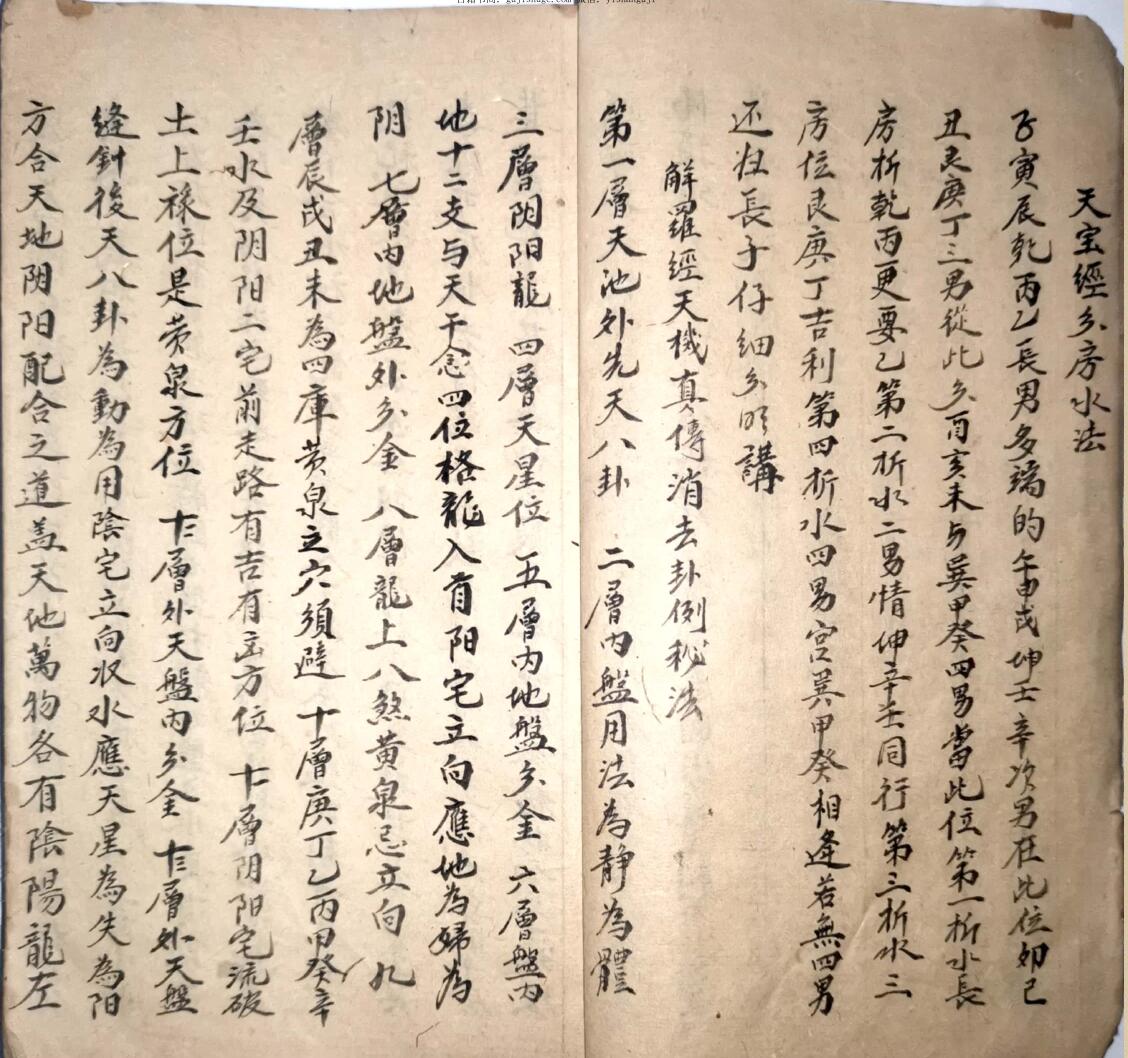 天宝經分房水法
子寅辰乾丙乙長男多端的午申戌坤壬辛次男在此位卯巳
丑艮庚丁三男從此分酉亥未与巽甲癸四男當此位第一折水長
房折乾丙更要乙第二折水二男情坤辛壬同行第三折水三
房位艮庚丁吉利第四折水四男宫巽甲癸相逢若無四男
还归長子仔细分明講
解羅經天機真傳消去卦例秘法
第一層天池外先天八卦 二層内盤用法為静為體
三層阴阳龍 四層天星位 五層内地盤分金 六層盤内
地十二支与天干念四位格龍入首阳宅立向應地為婦為
阴 七層内地盤外分金 八層龍上八煞黄泉忌立向 九
層辰戌丑未為四庫黄泉立穴須避 十層庚丁乙丙甲癸辛
壬水及阴阳二宅前走路有吉有凶方位 十一層阴阳宅流破
土上禄位是黄泉方位 十二層外天盤内分金 十三層外天盤
縫針後天八卦為動為用陰宅立向收水應天星為失為阳
方合天地阴阳配合之道盖天地萬物各有陰陽龍左